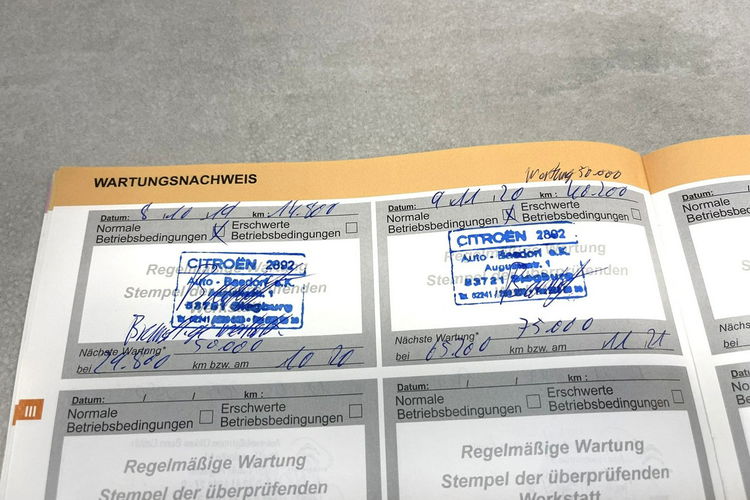 WARTUNGSNACHWEIS
Wartung 50.000
Datum: 8 10 19 km: 14.800
Normale Betriebsbedingungen X Erschwerte Betriebsbedingungen
Regelmäßige Wartung
Stempel der überprüfenden
CITROËN 2892
Auto - Beedorf e.K.
Augustastr. 1
53721 Siegburg
Nächste Wartung* 50.000
bei 29.800 km bzw. am 10 20
Datum: 9 11 20 km: 40.200
Normale Betriebsbedingungen X Erschwerte Betriebsbedingungen
Wartung
überprüfenden
CITROËN 2892
Auto - Beedorf e.K.
Augustastr. 1
53721 Siegburg
Nächste Wartung* 75.000
bei 65.200 km bzw. am 11 21
III
Datum: / / km:
Normale Betriebsbedingungen Erschwerte Betriebsbedingungen
Regelmäßige Wartung
Stempel der überprüfenden
Datum: / / km:
Normale Betriebsbedingungen Erschwerte Betriebsbedingungen
Regelmäßige Wartung
Stempel der überprüfenden
Werkstatt
Datum:
Normale